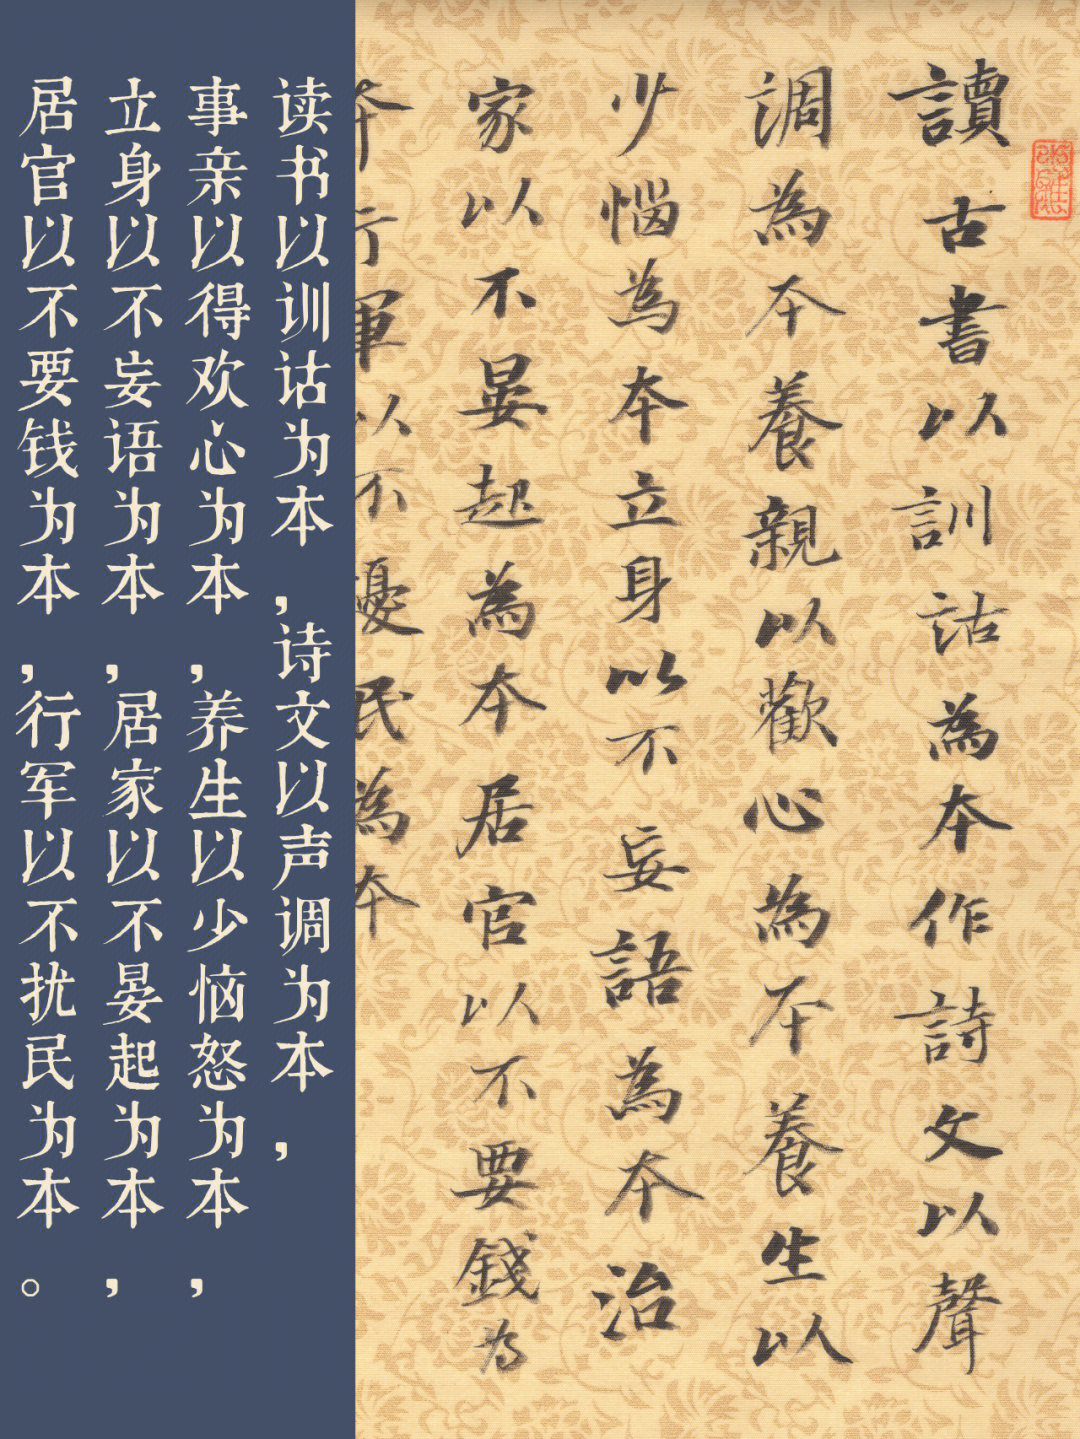 讀古書以訓詁為本作詩文以聲
調為本養親以歡心為本養生以
少惱為本立身以不妄語為本治
家以不晏起為本居官以不要錢为
本行軍以不擾民為本
读书以训诂为本,诗文以声调为本,
事亲以得欢心为本,养生以少恼怒为本,
立身以不妄语为本,居家以不晏起为本,
居官以不要钱为本,行军以不扰民为本。